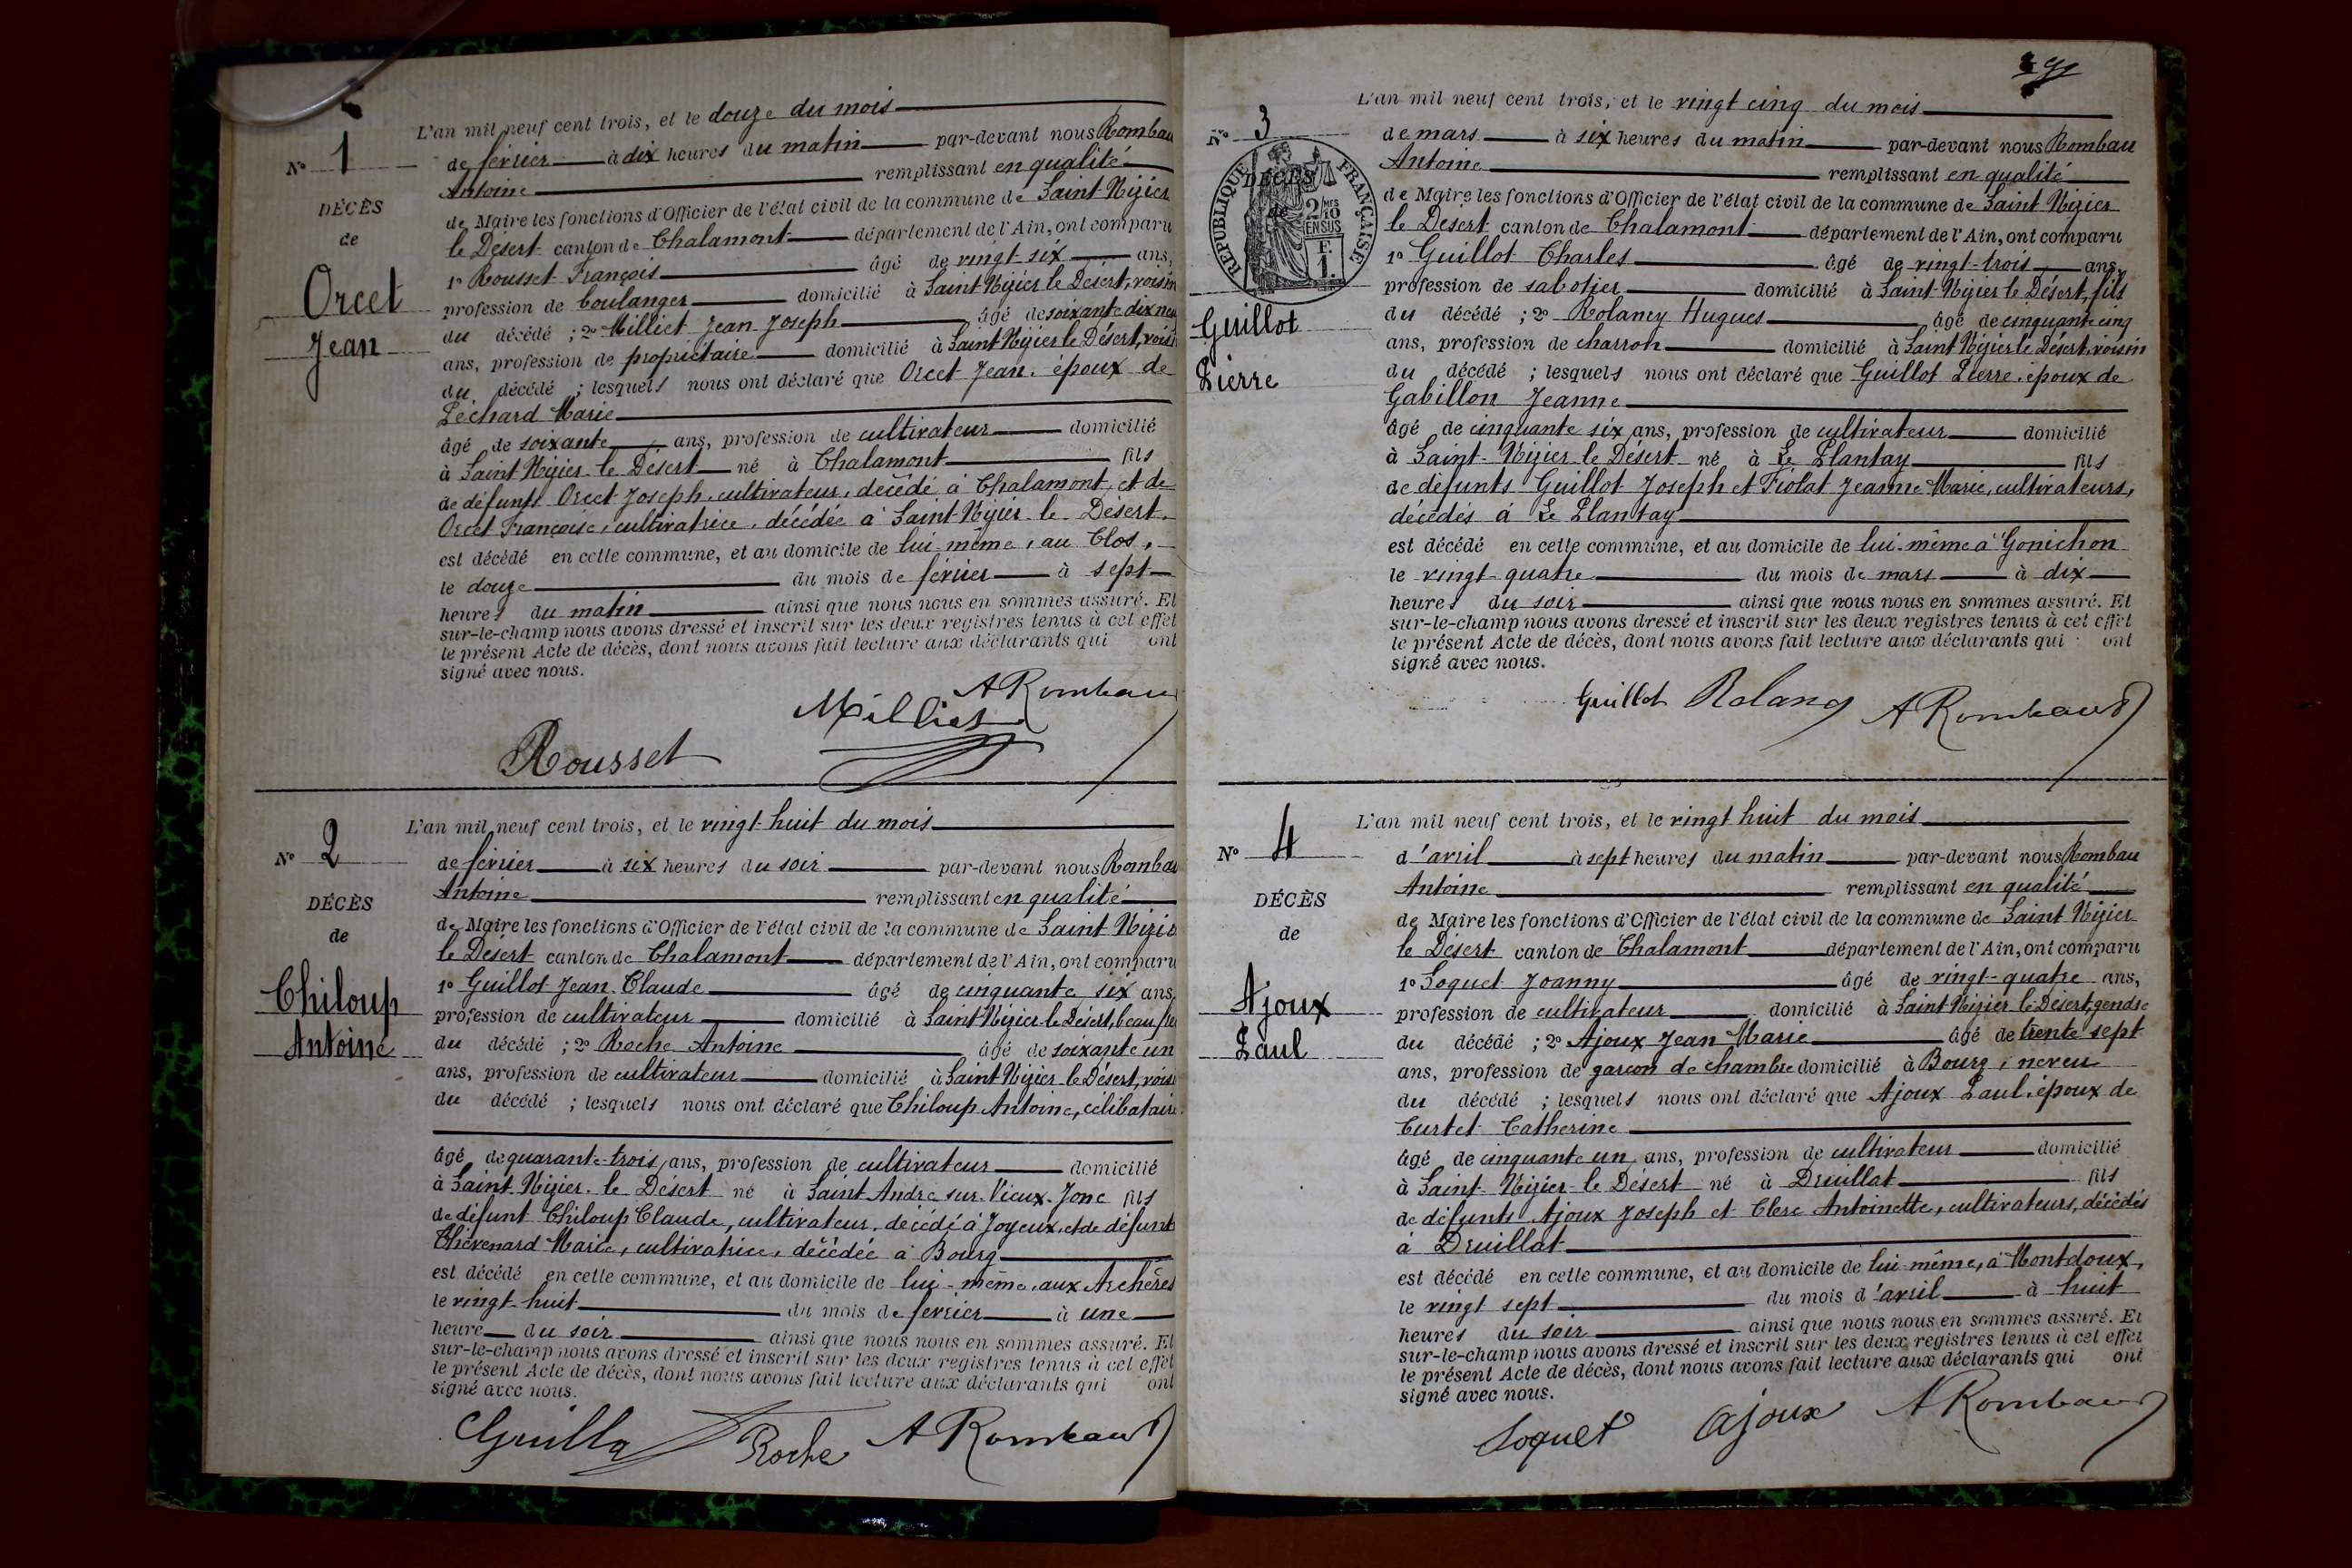 N° 1
DÉCÈS
de
Orcet
Jean
L'an mil neuf cent trois, et le douze du mois
de février à dix heures du matin par-devant nous Rombau
Antoine remplissant en qualité
de Maire les fonctions d'Officier de l'état civil de la commune de Saint Nizier
le Désert canton de Chalamont département de l'Ain, ont comparu
1° Rousset François âgé de vingt-six ans,
profession de boulanger domicilié à Saint Nizier le Désert, voisin
du décédé ; 2° Milliet Jean Joseph âgé de soixante dix neu
ans, profession de propriétaire domicilié à Saint Nizier le Désert, voisi
du décédé ; lesquels nous ont déclaré que Orcet Jean, époux de
Péchard Marie
âgé de soixante ans, profession de cultivateur domicilié
à Saint Nizier le Désert né à Chalamont fils
de défunts Orcet Joseph, cultivateur, décédé à Chalamont, et de
Orcet Françoise, cultivatrice, décédée à Saint-Nizier-le-Désert,
est décédé en cette commune, et au domicile de lui-même, au Clos,
le douze du mois de février à sept
heures du matin ainsi que nous nous en sommes assuré. Et
sur-le-champ nous avons dressé et inscrit sur les deux registres tenus à cet effet
le présent Acte de décès, dont nous avons fait lecture aux déclarants qui ont
signé avec nous.
A Rombau
Milliet
Rousset
N° 2
DÉCÈS
de
Chiloup
Antoine
L'an mil neuf cent trois, et le vingt-huit du mois
de février à six heures du soir par-devant nous Rombau
Antoine remplissant en qualité
de Maire les fonctions d'Officier de l'état civil de la commune de Saint Nizie
le Désert canton de Chalamont département de l'Ain, ont comparu
1° Guillot Jean-Claude âgé de cinquante six ans,
profession de cultivateur domicilié à Saint Nizier le Désert, beau frè
du décédé ; 2° Roche Antoine âgé de soixante un
ans, profession de cultivateur domicilié à Saint Nizier le Désert, voisi
du décédé ; lesquels nous ont déclaré que Chiloup Antoine, célibataire
âgé de quarante-trois ans, profession de cultivateur domicilié
à Saint-Nizier-le Désert né à Saint André-sur-Vieux-Jonc fils
de défunt Chiloup Claude, cultivateur, décédé à Joyeux, et de défunt
Chévenard Marie, cultivatrice, décédée à Bourg
est décédé en cette commune, et au domicile de lui-même, aux Archères
le vingt-huit du mois de février à une
heure du soir ainsi que nous nous en sommes assuré. Et
sur-le-champ nous avons dressé et inscrit sur les deux registres tenus à cet effet
le présent Acte de décès, dont nous avons fait lecture aux déclarants qui ont
signé avec nous.
Guillo Roche A Rombaud
N° 3
RÉPUBLIQUE FRANÇAISE
DÉCÈS
de
2/10 MES
EN SUS
F.
1.
Guillot
Pierre
L'an mil neuf cent trois, et le vingt cinq du mois
de mars à six heures du matin par-devant nous Rombau
Antoine remplissant en qualité
de Maire les fonctions d'Officier de l'état civil de la commune de Saint Nizier
le Désert canton de Chalamont département de l'Ain, ont comparu
1° Guillot Charles âgé de vingt-trois ans,
profession de sabotier domicilié à Saint-Nizier le Désert, fils
du décédé ; 2° Rolaney Hugues âgé de cinquante cinq
ans, profession de charron domicilié à Saint Nizier le Désert, voisin
du décédé ; lesquels nous ont déclaré que Guillot Pierre, époux de
Gabillon Jeanne
âgé de cinquante six ans, profession de cultivateur domicilié
à Saint-Nizier le Désert né à Le Plantay fils
de défunts Guillot Joseph et Fiolat Jeanne Marie, cultivateurs,
décédés à Le Plantay
est décédé en cette commune, et au domicile de lui-même à Gonichon
le vingt-quatre du mois de mars à dix
heures du soir ainsi que nous nous en sommes assuré. Et
sur-le-champ nous avons dressé et inscrit sur les deux registres tenus à cet effet
le présent Acte de décès, dont nous avons fait lecture aux déclarants qui ont
signé avec nous.
Guillot Rolany A Rombaud
N° 4
DÉCÈS
de
Ajoux
Paul
L'an mil neuf cent trois, et le vingt huit du mois
d'avril à sept heures du matin par-devant nous Rombau
Antoine remplissant en qualité
de Maire les fonctions d'Officier de l'état civil de la commune de Saint Nizier
le Désert canton de Chalamont département de l'Ain, ont comparu
1° Soquet Joanny âgé de vingt-quatre ans,
profession de cultivateur domicilié à Saint Nizier le Désert, gendre
du décédé ; 2° Ajoux Jean Marie âgé de trente sept
ans, profession de garçon de chambre domicilié à Bourg, neveu
du décédé ; lesquels nous ont déclaré que Ajoux Paul, époux de
Curtet Catherine
âgé de cinquante un ans, profession de cultivateur domicilié
à Saint-Nizier-le Désert né à Druillat fils
de défunts Ajoux Joseph et Clerc Antoinette, cultivateurs, décédés
à Druillat
est décédé en cette commune, et au domicile de lui-même, à Montdoux,
le vingt sept du mois d'avril à huit
heures du soir ainsi que nous nous en sommes assuré. Et
sur-le-champ nous avons dressé et inscrit sur les deux registres tenus à cet effet
le présent Acte de décès, dont nous avons fait lecture aux déclarants qui ont
signé avec nous.
Soquet Ajoux A Rombaud